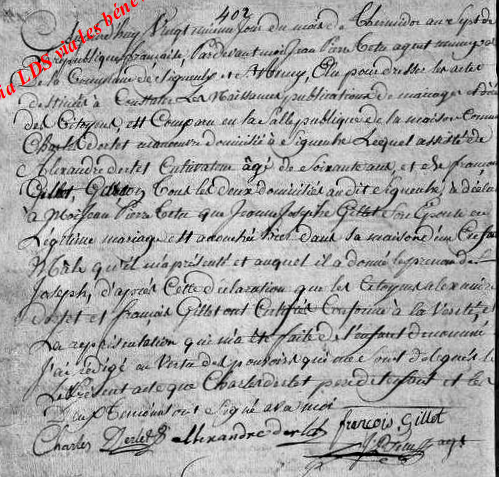 402
Aujourd'huy Vingt neuvieme jour du mois de Thermidor an Sept de
la République française, Pardevant moi Jean Pierre agent munic
de la Commune de et Elu pour dresser les actes
destinés à Constater Les Naissances, publications de mariages et décès
des Citoyens, est Comparu en la Salle publique de la maison Commune
Charles derlet manouvre domicilié à Lequel assisté de
Alexandre derlet Cultivateur âgé de Soixante ans, et de françois
Gillet, Garçon Tous les deux domiciliés audit a déclaré
à Moi Jean Pierre que Jeanne Josephe Gillet Son Epouse en
Légitime mariage est accouchée hier dans sa maison d'un Enfant
Mâle qu'il m'a présenté et auquel il a donné le prenom de
Joseph, d'après Cette déclaration que les Citoyens alexandre
derlet et françois Gillet ont Certifiée Conforme à la Verité, et
La représentation qui m'a été faite de l'enfant denommé
J'ai rédigé en Vertu des pouvoirs qui me sont délégués le
présent acte que Charles derlet pere de l'enfant et les
deux Temoins ont Signé avec moi
Charles Derlet allexandre derlet françois Gillet
agt
via LDS via les béné